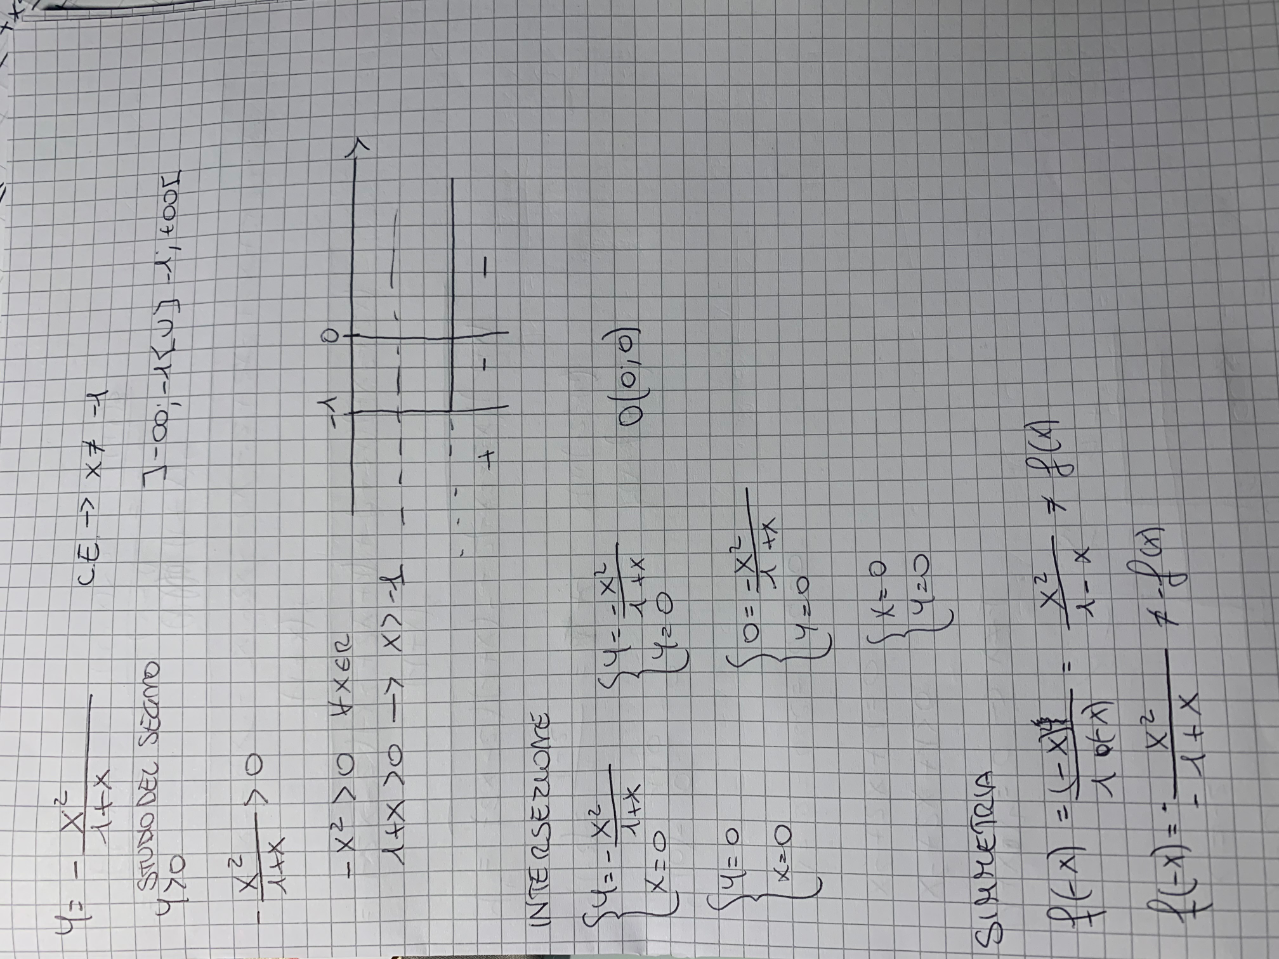 y = - x²/(1+x)    C.E → x ≠ -1
STUDIO DEL SEGNO    ]-∞; -1[ ∪ ] -1; +∞[
y>0
- x²/(1+x) > 0
-x² > 0   ∀x∈R
1+x > 0 → x > -1
-1   0
+   -   -
INTERSEZIONE
{ y = -x²/(1+x)    { y = -x²/(1+x)    O(0,0)
{ x=0    { y=0
{ y=0    { 0 = -x²/(1+x)
{ x=0    { y=0
{ x=0
{ y=0
SIMMETRIA
f(-x) = = x²/(1-x) ≠ f(x)
f(-x) = x²/(-1+x) ≠ -f(x)